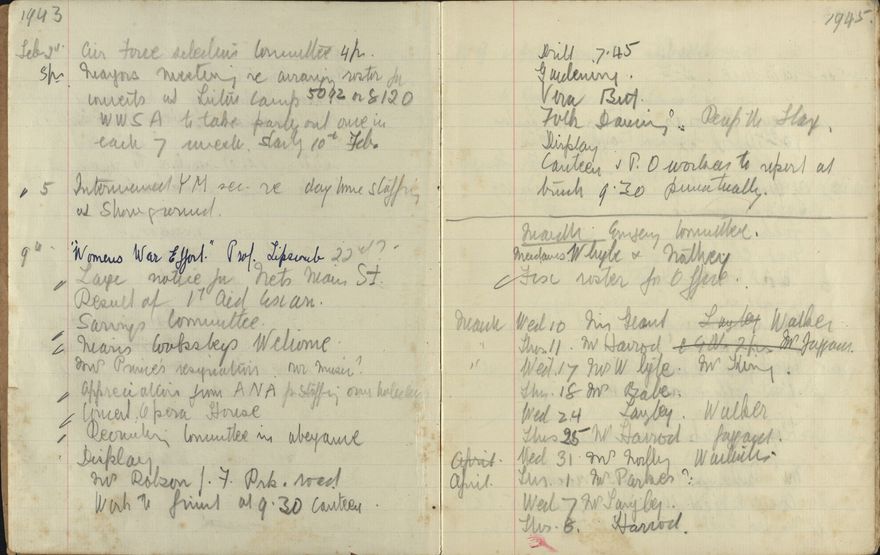 1943
Feb 2nd Air Force selection Committee 4p.
8pm Mayors meeting re arranging roster for
concerts at Camp 5092 or 8120
WWSA to take party out one in
each 7 week. Starts 10th Feb.
" 5 Interviewed YM sec. re day time staffing
at Showground.
9th "Womens War Effort." Prof. Lipscomb 22nd?
Large notice for Nets Main St.
Result of 1st Aid Exam.
Savings Committee.
Welcome
Mr resignation. or music?
Appreciation from ANA for staffing over holidays
Concert, Opera House
Recruiting Committee in abeyance
Display
Mr Robson J. F. Prk. road
Work to finish at 9.30 Canteen.
1945.
Drill 7.45
Gardening.
Vera Brot.
Folk Dancing. the Slav.
Display
Canteen & P.O workers to report at
9.30 punctually.
March Emgcy Committee.
Mesdames Whyle & Nathey
Fix roster for Office.
March Wed 10 Mrs Grant Langley Walker
" Thurs. 11. Mr Harrod Mr
" Wed. 17 Mr Whyle. Mr King.
Thu. 18 Mr
Wed 24 Langley. Walker
Thurs 25 Mr Harrod
April. Wed 31 Mr
April. Thurs. 1 Mr Parkes?
Wed 7 Mr Langley.
Thrs. 8. Harrod.